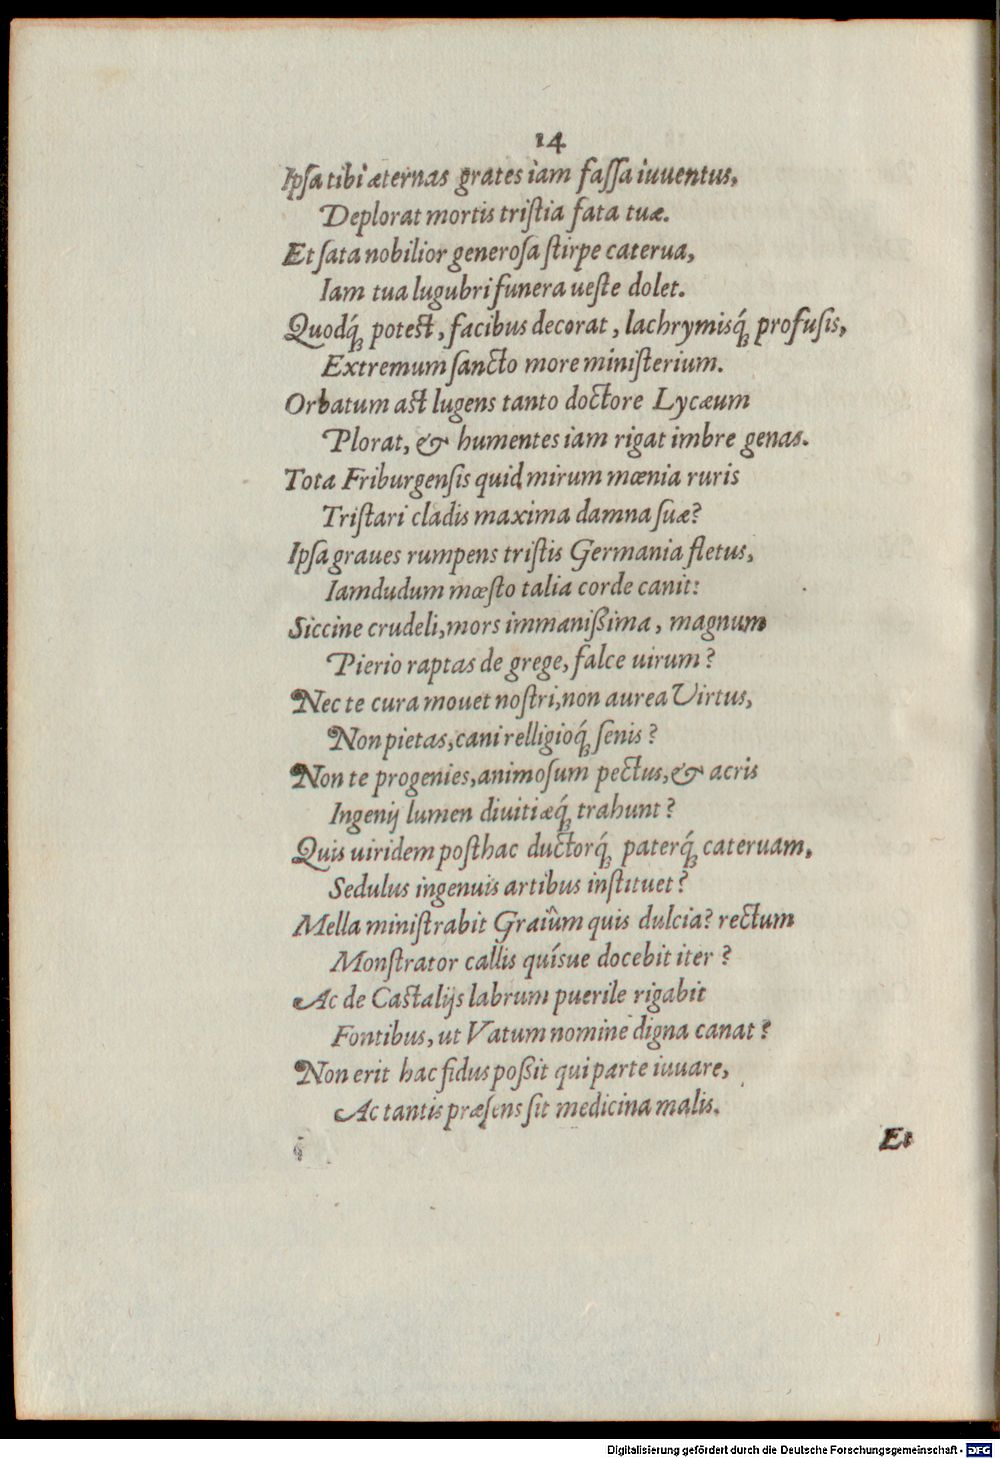 14
Ipſa tibi æternas grates iam faſſa iuuentus,
Deplorat mortis triſtia fata tuæ.
Et ſata nobilior generoſa ſtirpe caterua,
Iam tua lugubri funera ueſte dolet.
Quodq́ꝫ potest, facibus decorat, lachrymisq́ꝫ profuſis,
Extremum ſancto more miniſterium.
Orbatum ast lugens tanto doctore Lycæum
Plorat, & humentes iam rigat imbre genas.
Tota Friburgenſis quid mirum mœnia ruris
Triſtari cladis maxima damna ſuæ?
Ipſa graues rumpens triſtis Germania fletus,
Iamdudum mœſto talia corde canit:
Siccine crudeli, mors immanißima, magnum
Pierio raptas de grege, falce uirum?
Nec te cura mouet noſtri, non aurea Virtus,
Non pietas, cani relligioq́ꝫ ſenis?
Non te progenies, animoſum pectus, & acris
Ingenij lumen diuitiæq́ꝫ trahunt?
Quis uiridem poſthac ductorq́ꝫ paterq́ꝫ cateruam,
Sedulus ingenuis artibus inſtituet?
Mella miniſtrabit Graiûm quis dulcia? rectum
Monſtrator callis quíſue docebit iter?
Ac de Castalijs labrum puerile rigabit
Fontibus, ut Vatum nomine digna canat?
Non erit hac fidus poßit qui parte iuuare,
Ac tantis præſens ſit medicina malis.
Et
Digitalisierung gefördert durch die Deutsche Forschungsgemeinschaft - DFG